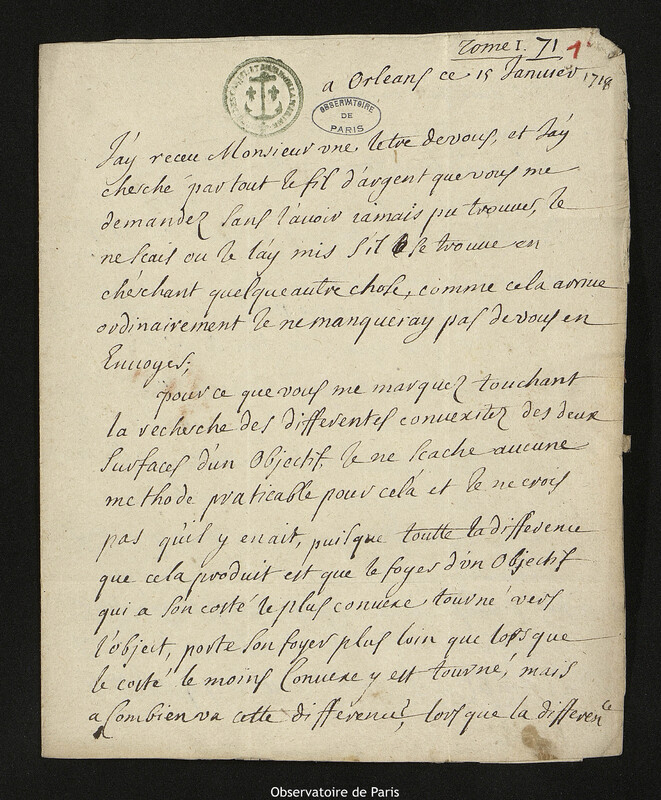 Tome I. 71 1
a Orleans ce 15 Januier 1718
OBSERVATOIRE
DE
PARIS
J'ay receu Monsieur vne lettre de vous, et J'ay
cherché par tout le fil d'argent que vous me
demandez sans l'auoir iamais pu trouuer, Ie
ne scais ou Ie l'ay mis s'il se trouue en
chérchant quelque autre chose, comme cela arriue
ordinairement Ie ne manqueray pas de vous en
Enuoyer;
pour ce que vous me marquez touchant
la recherche des differentes conuexitez des deux
surfaces d'un Objectif, Ie ne scache aucune
methode praticable pour celà et Ie ne crois
pas qu'il y en ait, puisque toutte la difference
que cela produit est que le foyer d'vn Objectif
qui a son costé le plus conuexe tourné vers
l'object, porte son foyer plus loin que lors que
le costé le moins Conuexe y est tourné, mais
a Combien va cette différence?, lors que la differen<sup>ce</sup>
Observatoire de Paris